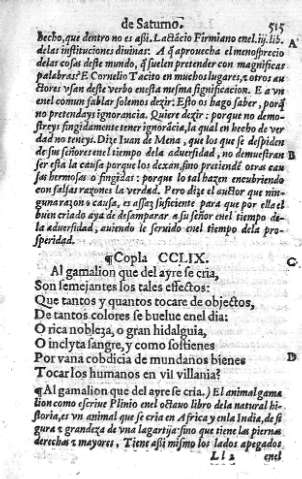 de Saturno. 515
hecho, que dentro no es assi. Lactacio Firmiano enel. iij. lib.
delas instituciones diuinas: A q̃ aprouecha el menosprecio A
delas cosas deste mundo, q̃ suelen pretender con magnificas
palabras? E Cornelio Tacito en muchos lugares, z otros au
ctores vsan deste verbo enesta mesma significacion. E a vn
enel comun hablar solemos dezir: Esto os hago saber, porq̃
no pretendays ignorancia. Quiere dezir: porque no demo-
streys fingidamente tener ignorãcia, la qual en hecho de ver
dad no teneys. Dize Iuan de Mena, que los que se despiden
de sus señores enel tiempo dela aduersidad, no demuestran B
ser esta la causa porque los dexan, sino pretendẽ otras cau
sas hermosas o fingidas: porque lo tal hazen encubriendo
con falsas razones la verdad. Pero dize el auctor que nin-
guna razon o causa, es assaz suficiente para que por ella el
buen criado aya de desamparar a su señor enel tiempo de-
la aduersidad, auiendo le seruido enel tiempo dela pro-
speridad.
¶Copla CCLIX. C
Al gamalion que del ayre se cria,
Son semejantes los tales effectos:
Que tantos y quantos tocare de objectos,
De tantos colores se buelue enel dia:
O rica nobleza, o gran hidalguia,
O inclyta sangre, y como sostienes
Por vana cobdicia de mundanos bienes D
Tocar los humanos en vil villania?
¶Al gamalion que del ayre se cria.) El animal gama
lion como escriue Plinio enel octauo libro dela natural hi-
storia, es vn animal que se cria en Africa y enla India, de fi
gura z grandeza de vna lagartija: sino que tiene las piernas
derechas z mayores, Tiene assi mismo los lados apegados
Ll 2 enel